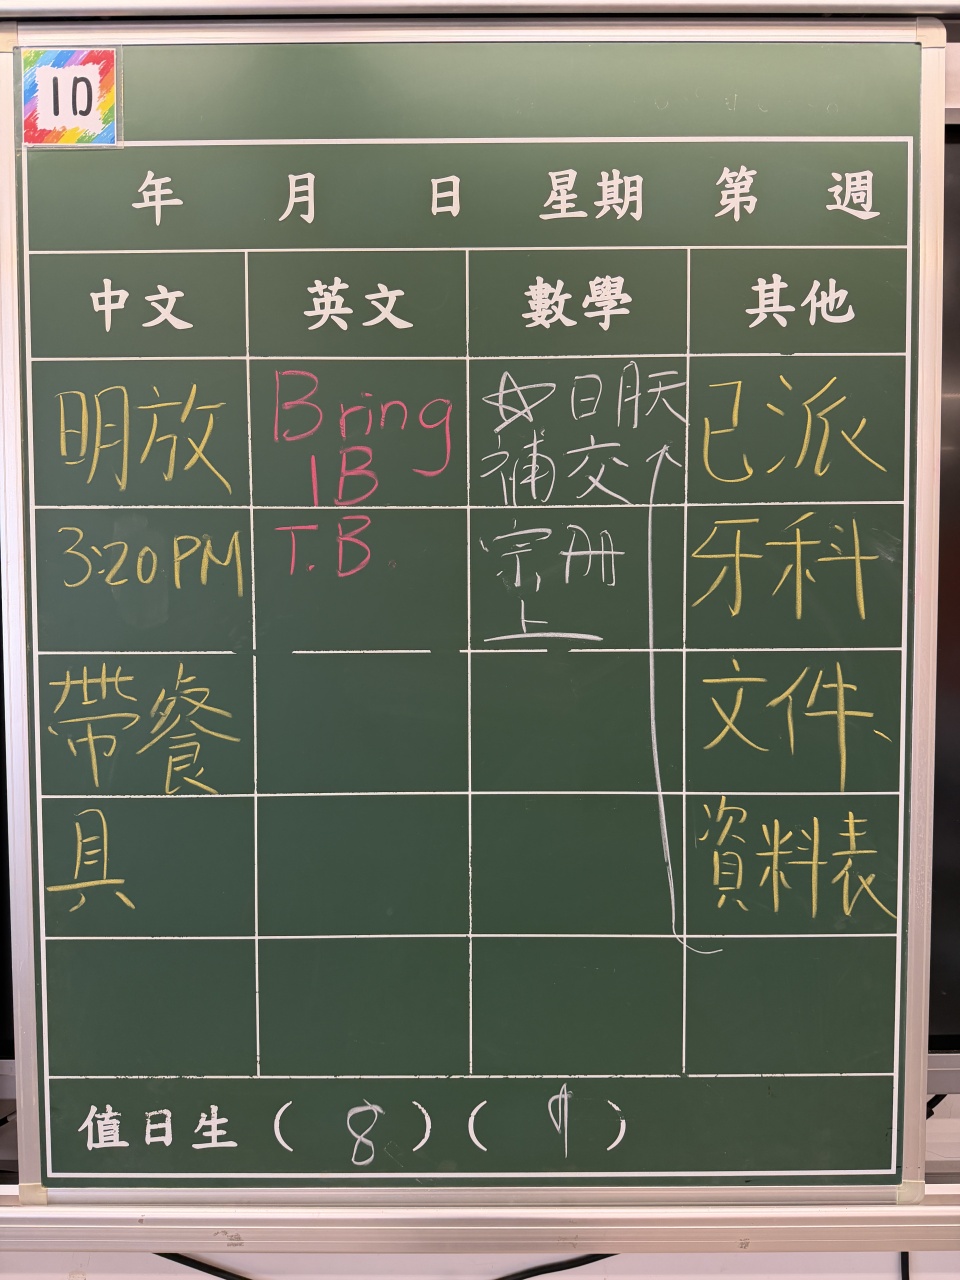 1D
年 月 日 星期 第 週
中文 英文 數學 其他
明放
3:20PM
帶餐
具
Bring
1B
T.B.
☆明天
補交
上
已派
牙科
文件、
資料表
值日生 ( 8 ) ( 9 )